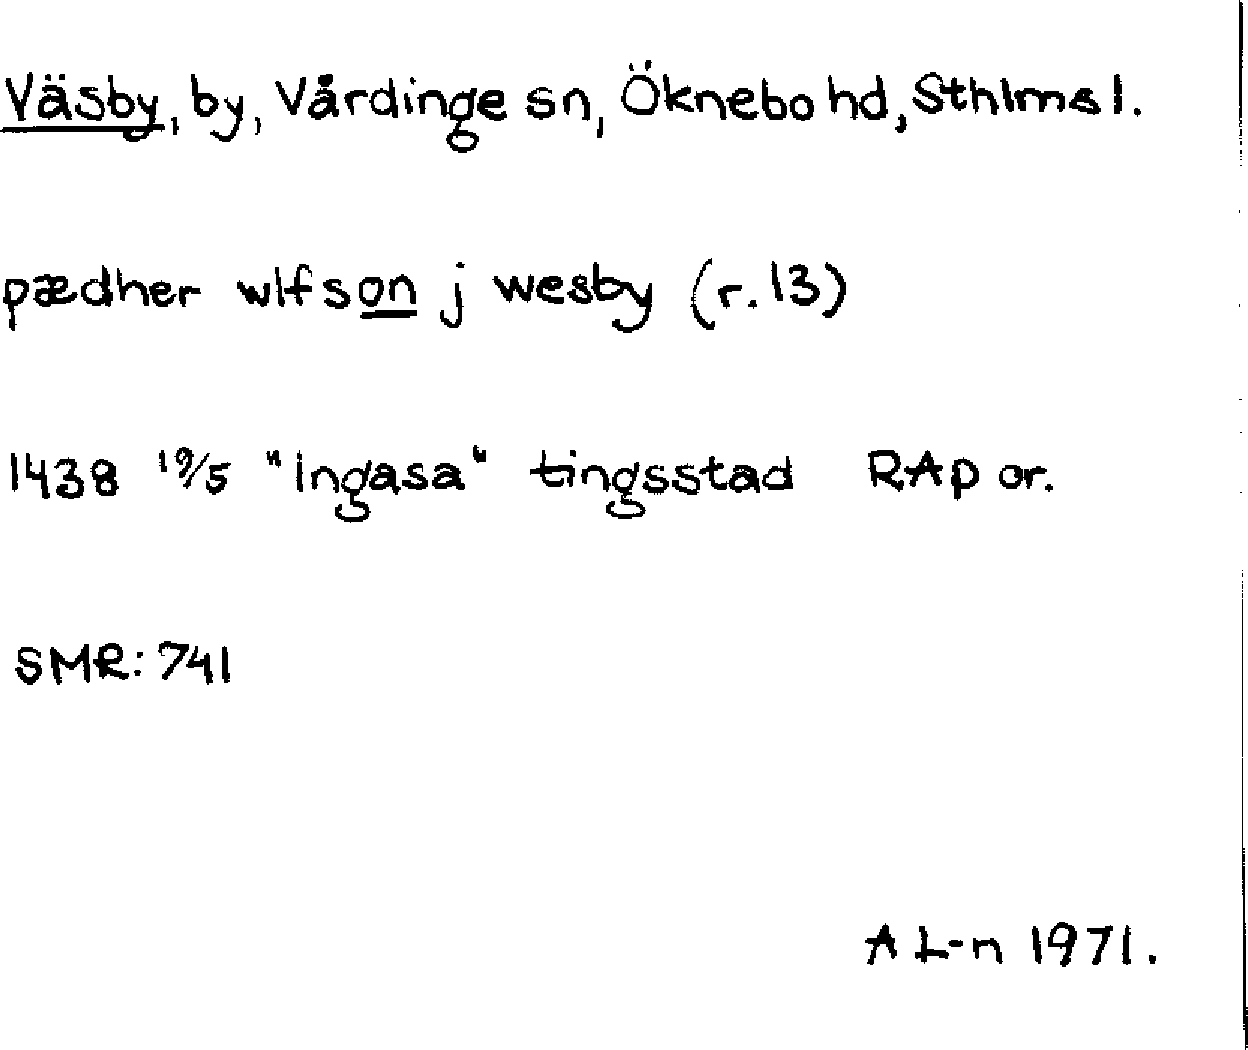 Väsby, by, Vårdinge sn, Öknebo hd, Sthlms l.
pædher wlfson j wesby (r. 13)
1438 19/5 "Ingasa" tingsstad RAp or.
SMR: 741
A L-n 1971.